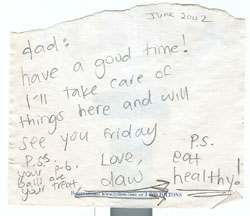 June 2002
dad:
have a good time!
I'll take care of
things here and will
see you Friday
Love,
daw
P.S.
eat
healthy!
P.SS.
your p.b.
balls are
your treat